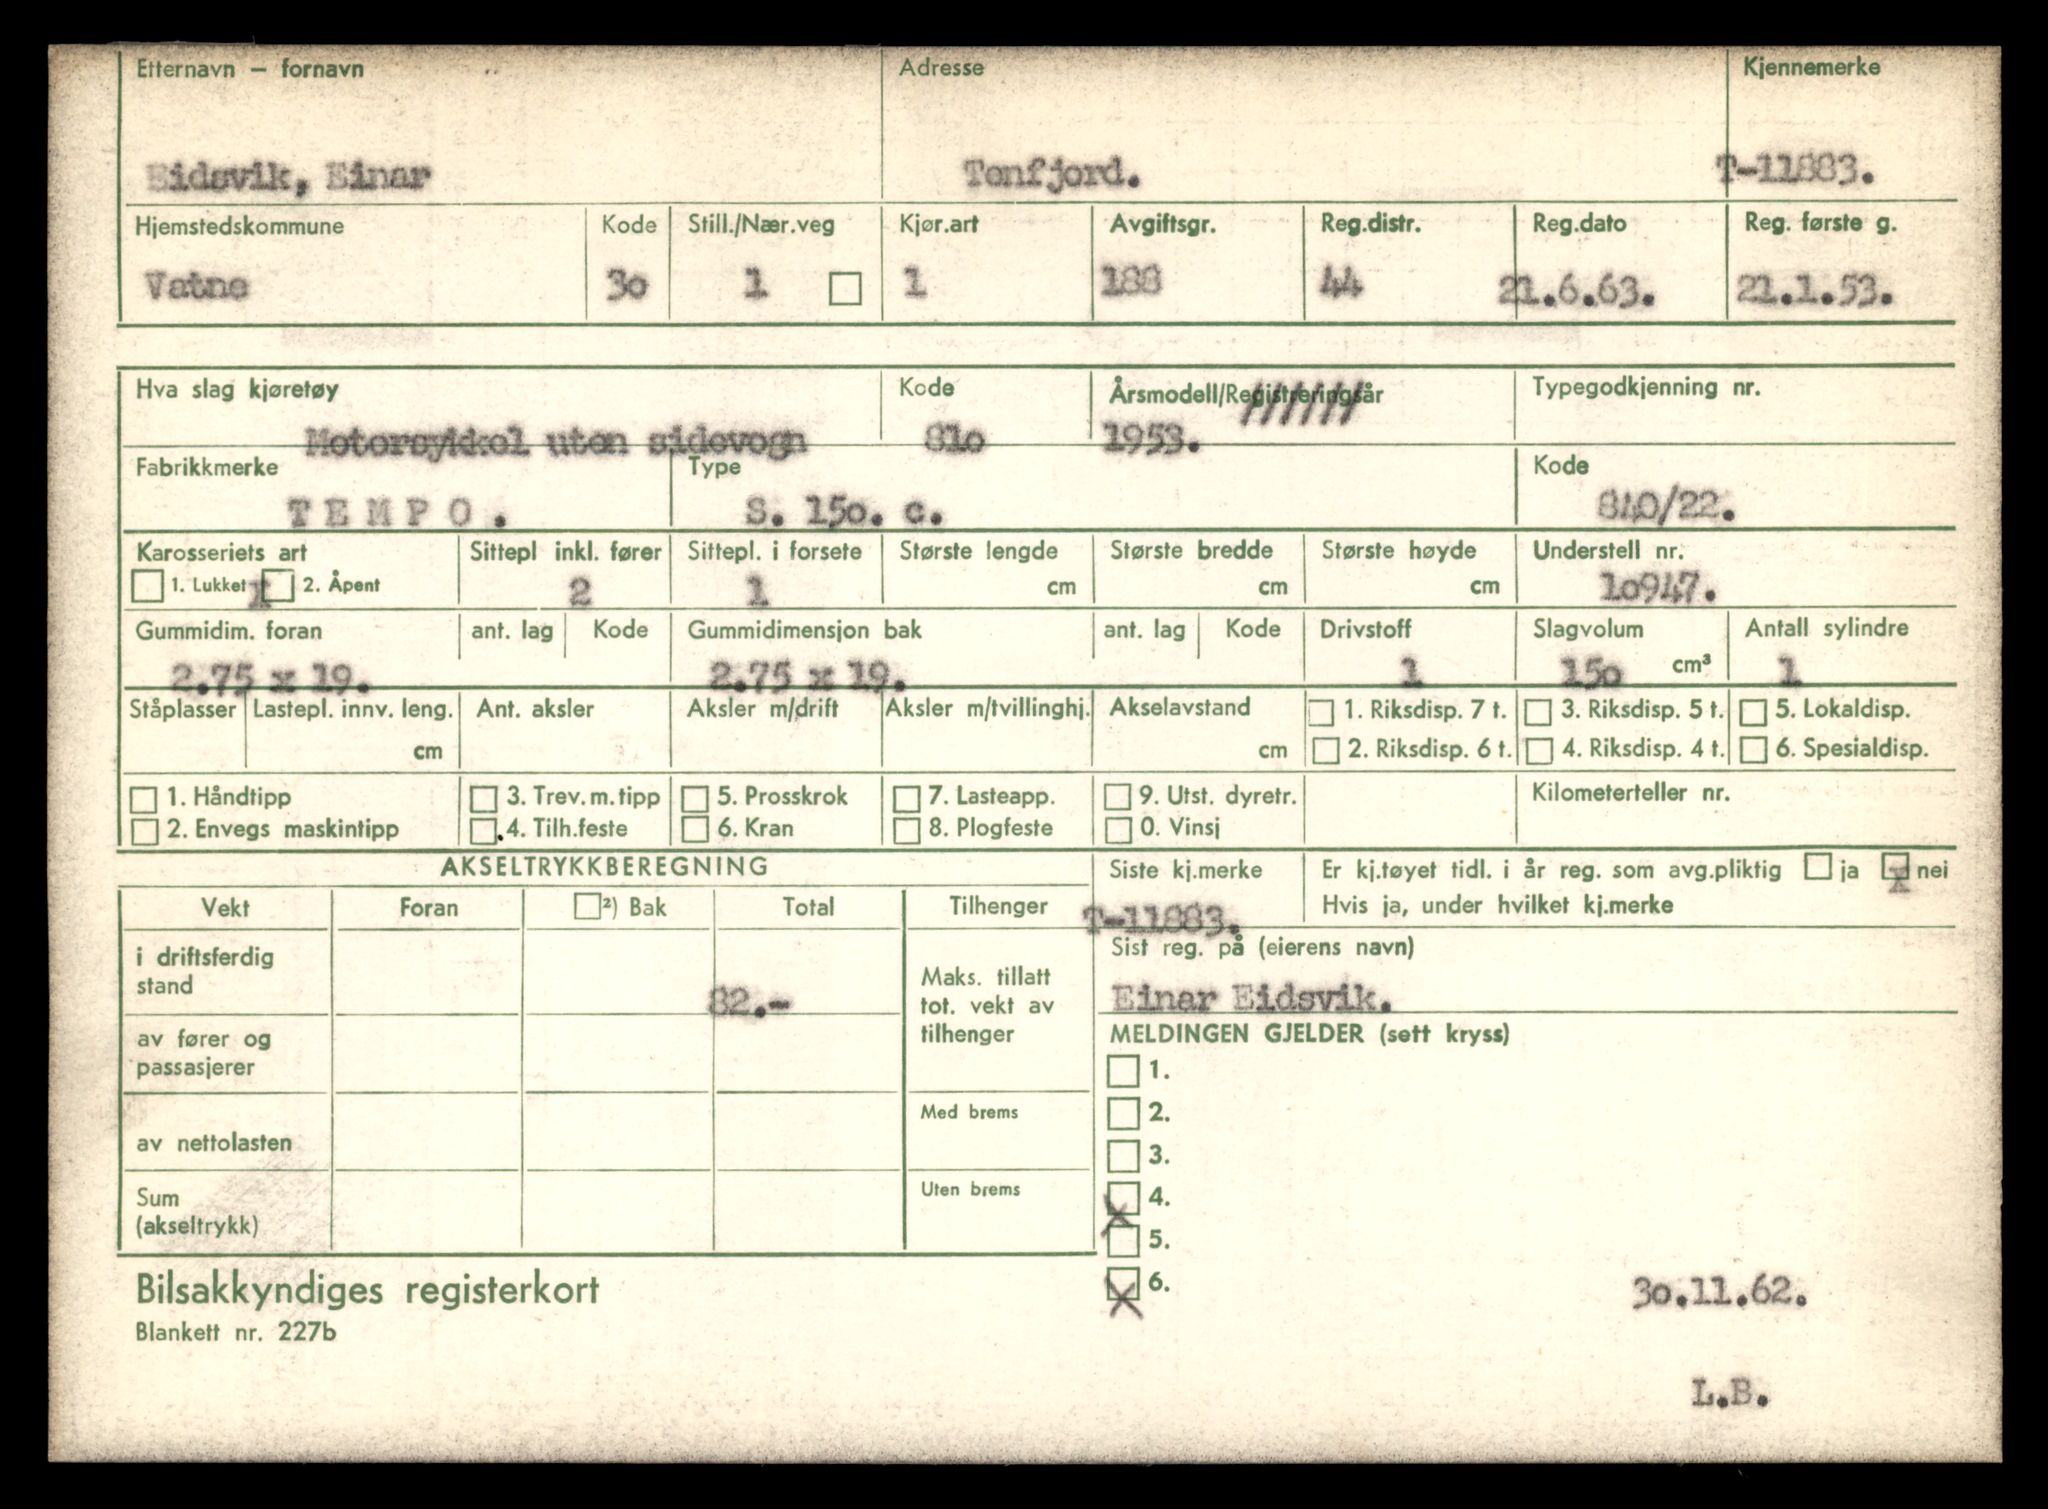 Etternavn – fornavn Adresse Kjennemerke
Eidsvik, Einar Tenfjord. T-11883.
Hjemstedskommune Kode Still./Nær.veg Kjør.art Avgiftsgr. Reg.distr. Reg.dato Reg. første g.
Vatne 30 1 1 188 44 21.6.63. 21.1.53.
Hva slag kjøretøy Kode Årsmodell/Registreringsår Typegodkjenning nr.
Motorsykkel uten sidevogn 810 1953.
Fabrikkmerke Type Kode
TEMPO. S. 150. c. 840/22.
Karosseriets art Sittepl inkl. fører Sittepl. i forsete Største lengde Største bredde Største høyde Understell nr.
1. Lukket x 2. Åpent 2 1 cm cm cm 10947.
Gummidim. foran ant. lag Kode Gummidimensjon bak ant. lag Kode Drivstoff Slagvolum Antall sylindre
2.75 x 19. 2.75 x 19. 1 150 cm³ 1
Ståplasser Lastepl. innv. leng. Ant. aksler Aksler m/drift Aksler m/tvillinghj. Akselavstand 1. Riksdisp. 7 t. 3. Riksdisp. 5 t. 5. Lokaldisp.
cm cm 2. Riksdisp. 6 t. 4. Riksdisp. 4 t. 6. Spesialdisp.
1. Håndtipp 3. Trev. m. tipp 5. Prosskrok 7. Lasteapp. 9. Utst. dyretr. Kilometerteller nr.
2. Envegs maskintipp 4. Tilh.feste 6. Kran 8. Plogfeste 0. Vinsj
AKSELTRYKKBEREGNING Siste kj.merke Er kj.tøyet tidl. i år reg. som avg.pliktig ja x nei
Vekt Foran ²) Bak Total Tilhenger T-11883. Hvis ja, under hvilket kj.merke
i driftsferdig stand 82.- Maks. tillatt tot. vekt av tilhenger Sist reg. på (eierens navn)
Einar Eidsvik.
av fører og passasjerer MELDINGEN GJELDER (sett kryss)
1.
av nettolasten Med brems 2.
3.
Sum (akseltrykk) Uten brems x 4.
5.
Bilsakkyndiges registerkort x 6. 30.11.62.
Blankett nr. 227b
L.B.